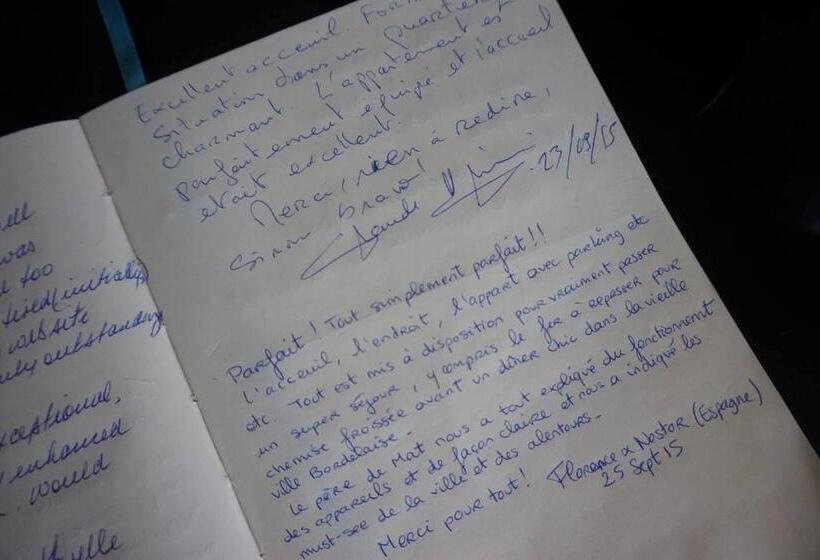 ell
was
e too
tired (initially)
website
outstanding
xceptional,
enhanced
would
Excellent acceuil. Form
Situation dans un quartier
charmant. L'appartement est
parfaitement équipé et l'accueil
etait excellent.
Merci, rien à redire,
sinon bravo!
Claude 23/09/15
Parfait! Tout simplement parfait!!
L'acceuil, l'endroit, l'appart avec parking etc
etc. Tout est mis à disposition pour vraiment passer
un super séjour, y compris le fer à repasser pour
chemise froissée avant un dîner chic dans la vieille
ville Bordelaise.
Le père de Mat nous a tout expliqué du fonctionnemt
des appareils et de façon claire et nous a indiqué les
must-see de la ville et des alentours.
Merci pour tout! Florence & Nostor (Espagne)
25 Sept 15